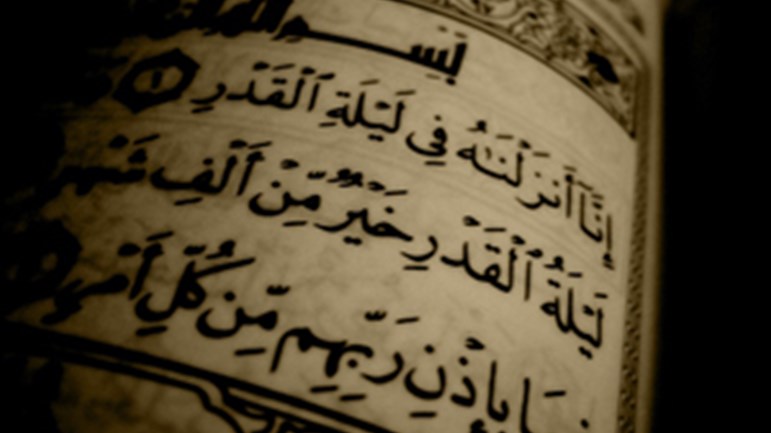 بِسْمِ
إِنَّآ أَنزَلْنَٰهُ فِى لَيْلَةِ ٱلْقَدْرِ ١
لَيْلَةُ ٱلْقَدْرِ خَيْرٌ مِّنْ أَلْفِ شَهْرٍ
بِإِذْنِ رَبِّهِم مِّن كُلِّ أَمْرٍ